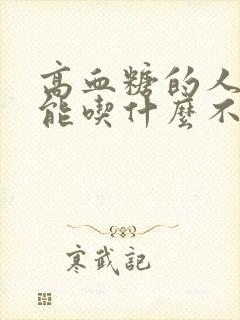 高血糖的人
能喫什麼不
寒武記